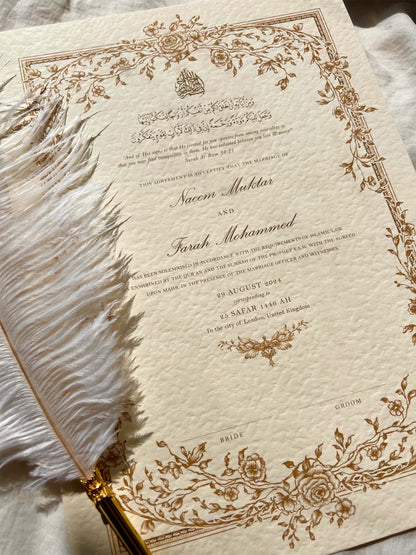 "And of His signs is that He created for you spouses from among yourselves so
that you may find tranquility in them, He has ordained between you love & mercy"
Surah Ar Rum 30:21
THIS AGREEMENT IS TO CERTIFY THAT THE MARRIAGE OF
Naeem Muktar
AND
Farah Mohammed
HAS BEEN SOLEMNISED IN ACCORDANCE WITH THE REQUIREMENTS OF ISLAMIC LAW
ENSHRINED BY THE QUR'AN AND THE SUNNAH OF THE PROPHET S.A.W. WITH THE AGREED
UPON MAHR, IN THE PRESENCE OF THE MARRIAGE OFFICER AND WITNESSES.
29 AUGUST 2024
corresponding to
25 SAFAR 1446 AH
In the city of London, United Kingdom
BRIDE GROOM